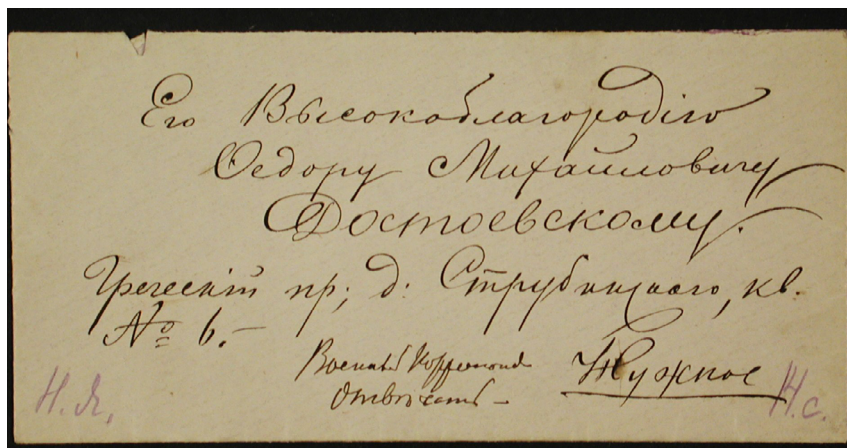 Его Высокоблагородію
Ѳедору Михайловичу
Достоевскому.
Греческій пр; д. Струбинскаго, кв.
№ 6.–
Нужное
Н. с.